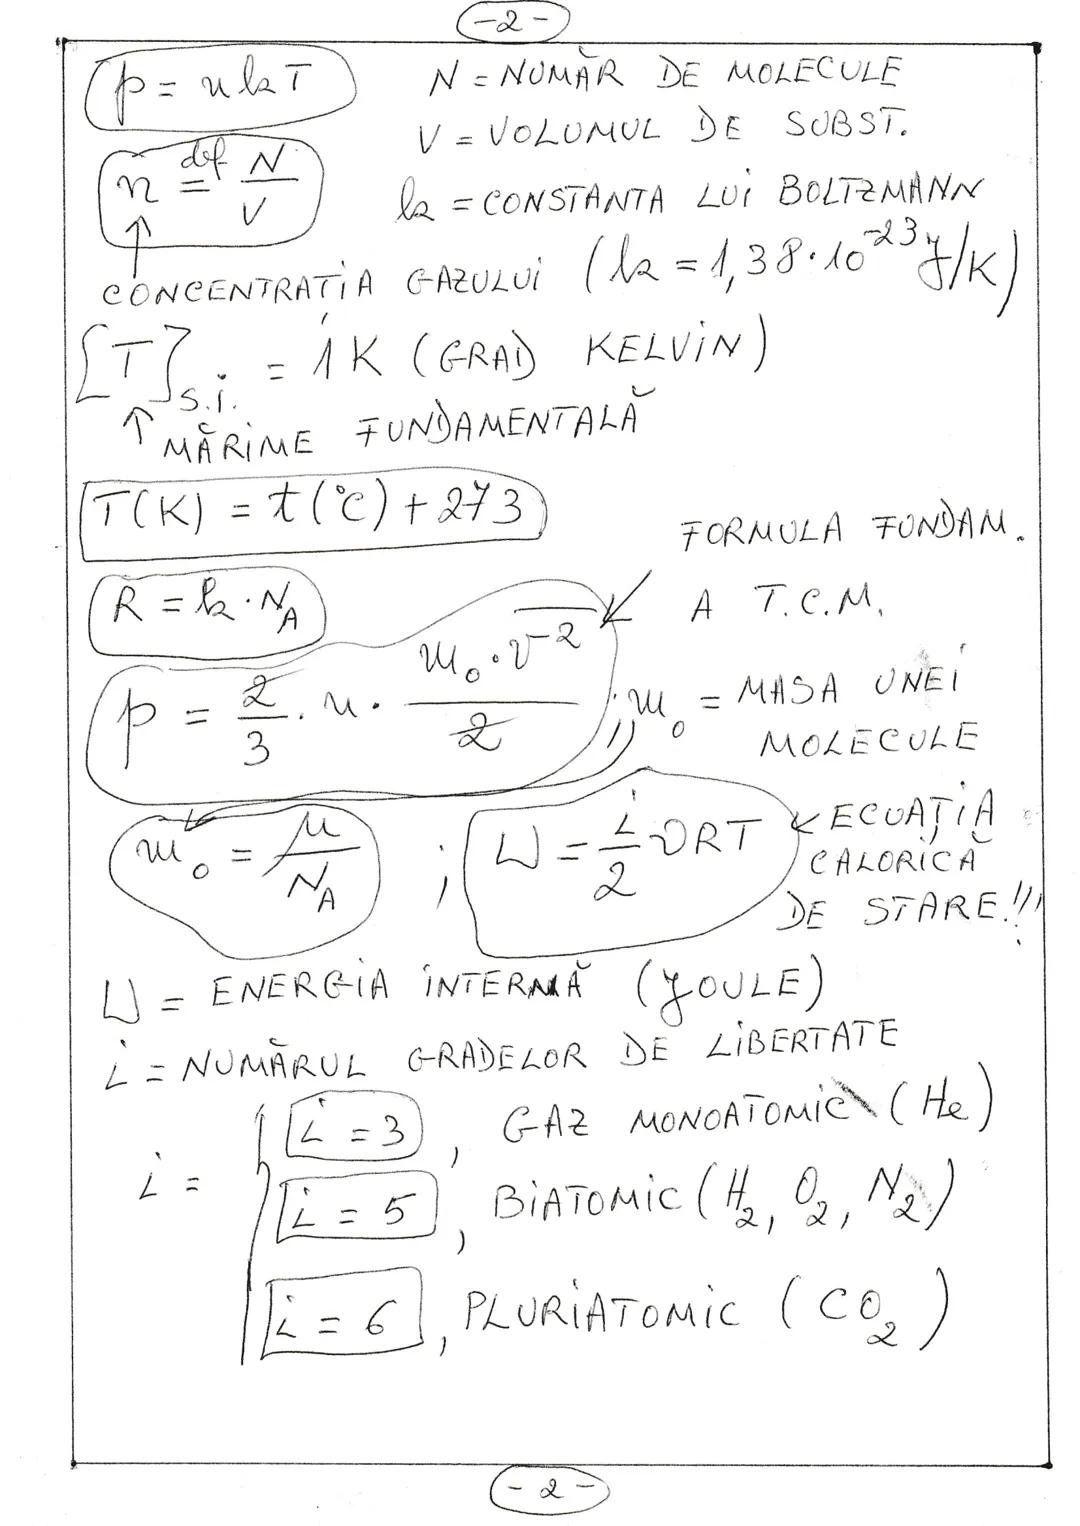 -2-
p = nkT
N = NUMĂR DE MOLECULE
V = VOLUMUL DE SUBST.
n def= N/V
k = CONSTANTA LUI BOLTZMANN
CONCENTRAȚIA GAZULUI (k = 1,38·10^-23 J/K)
[T]S.i. = 1K (GRAD KELVIN)
↑ MĂRIME FUNDAMENTALĂ
T(K) = t(°C) + 273
FORMULA FUNDAM.
A T.C.M.
R = k·N_A
p = 2/3 · n · m₀·v̄²/2 ; m₀ = MASA UNEI
MOLECULE
m₀ = μ/N_A ; U = i/2 νRT ← ECUAȚIA
CALORICĂ
DE STARE!!!
U = ENERGIA INTERNĂ (JOULE)
i = NUMĂRUL GRADELOR DE LIBERTATE
i = { i = 3, GAZ MONOATOMIC (He)
i = 5, BIATOMIC (H₂, O₂, N₂)
i = 6, PLURIATOMIC (CO₂)
-2-